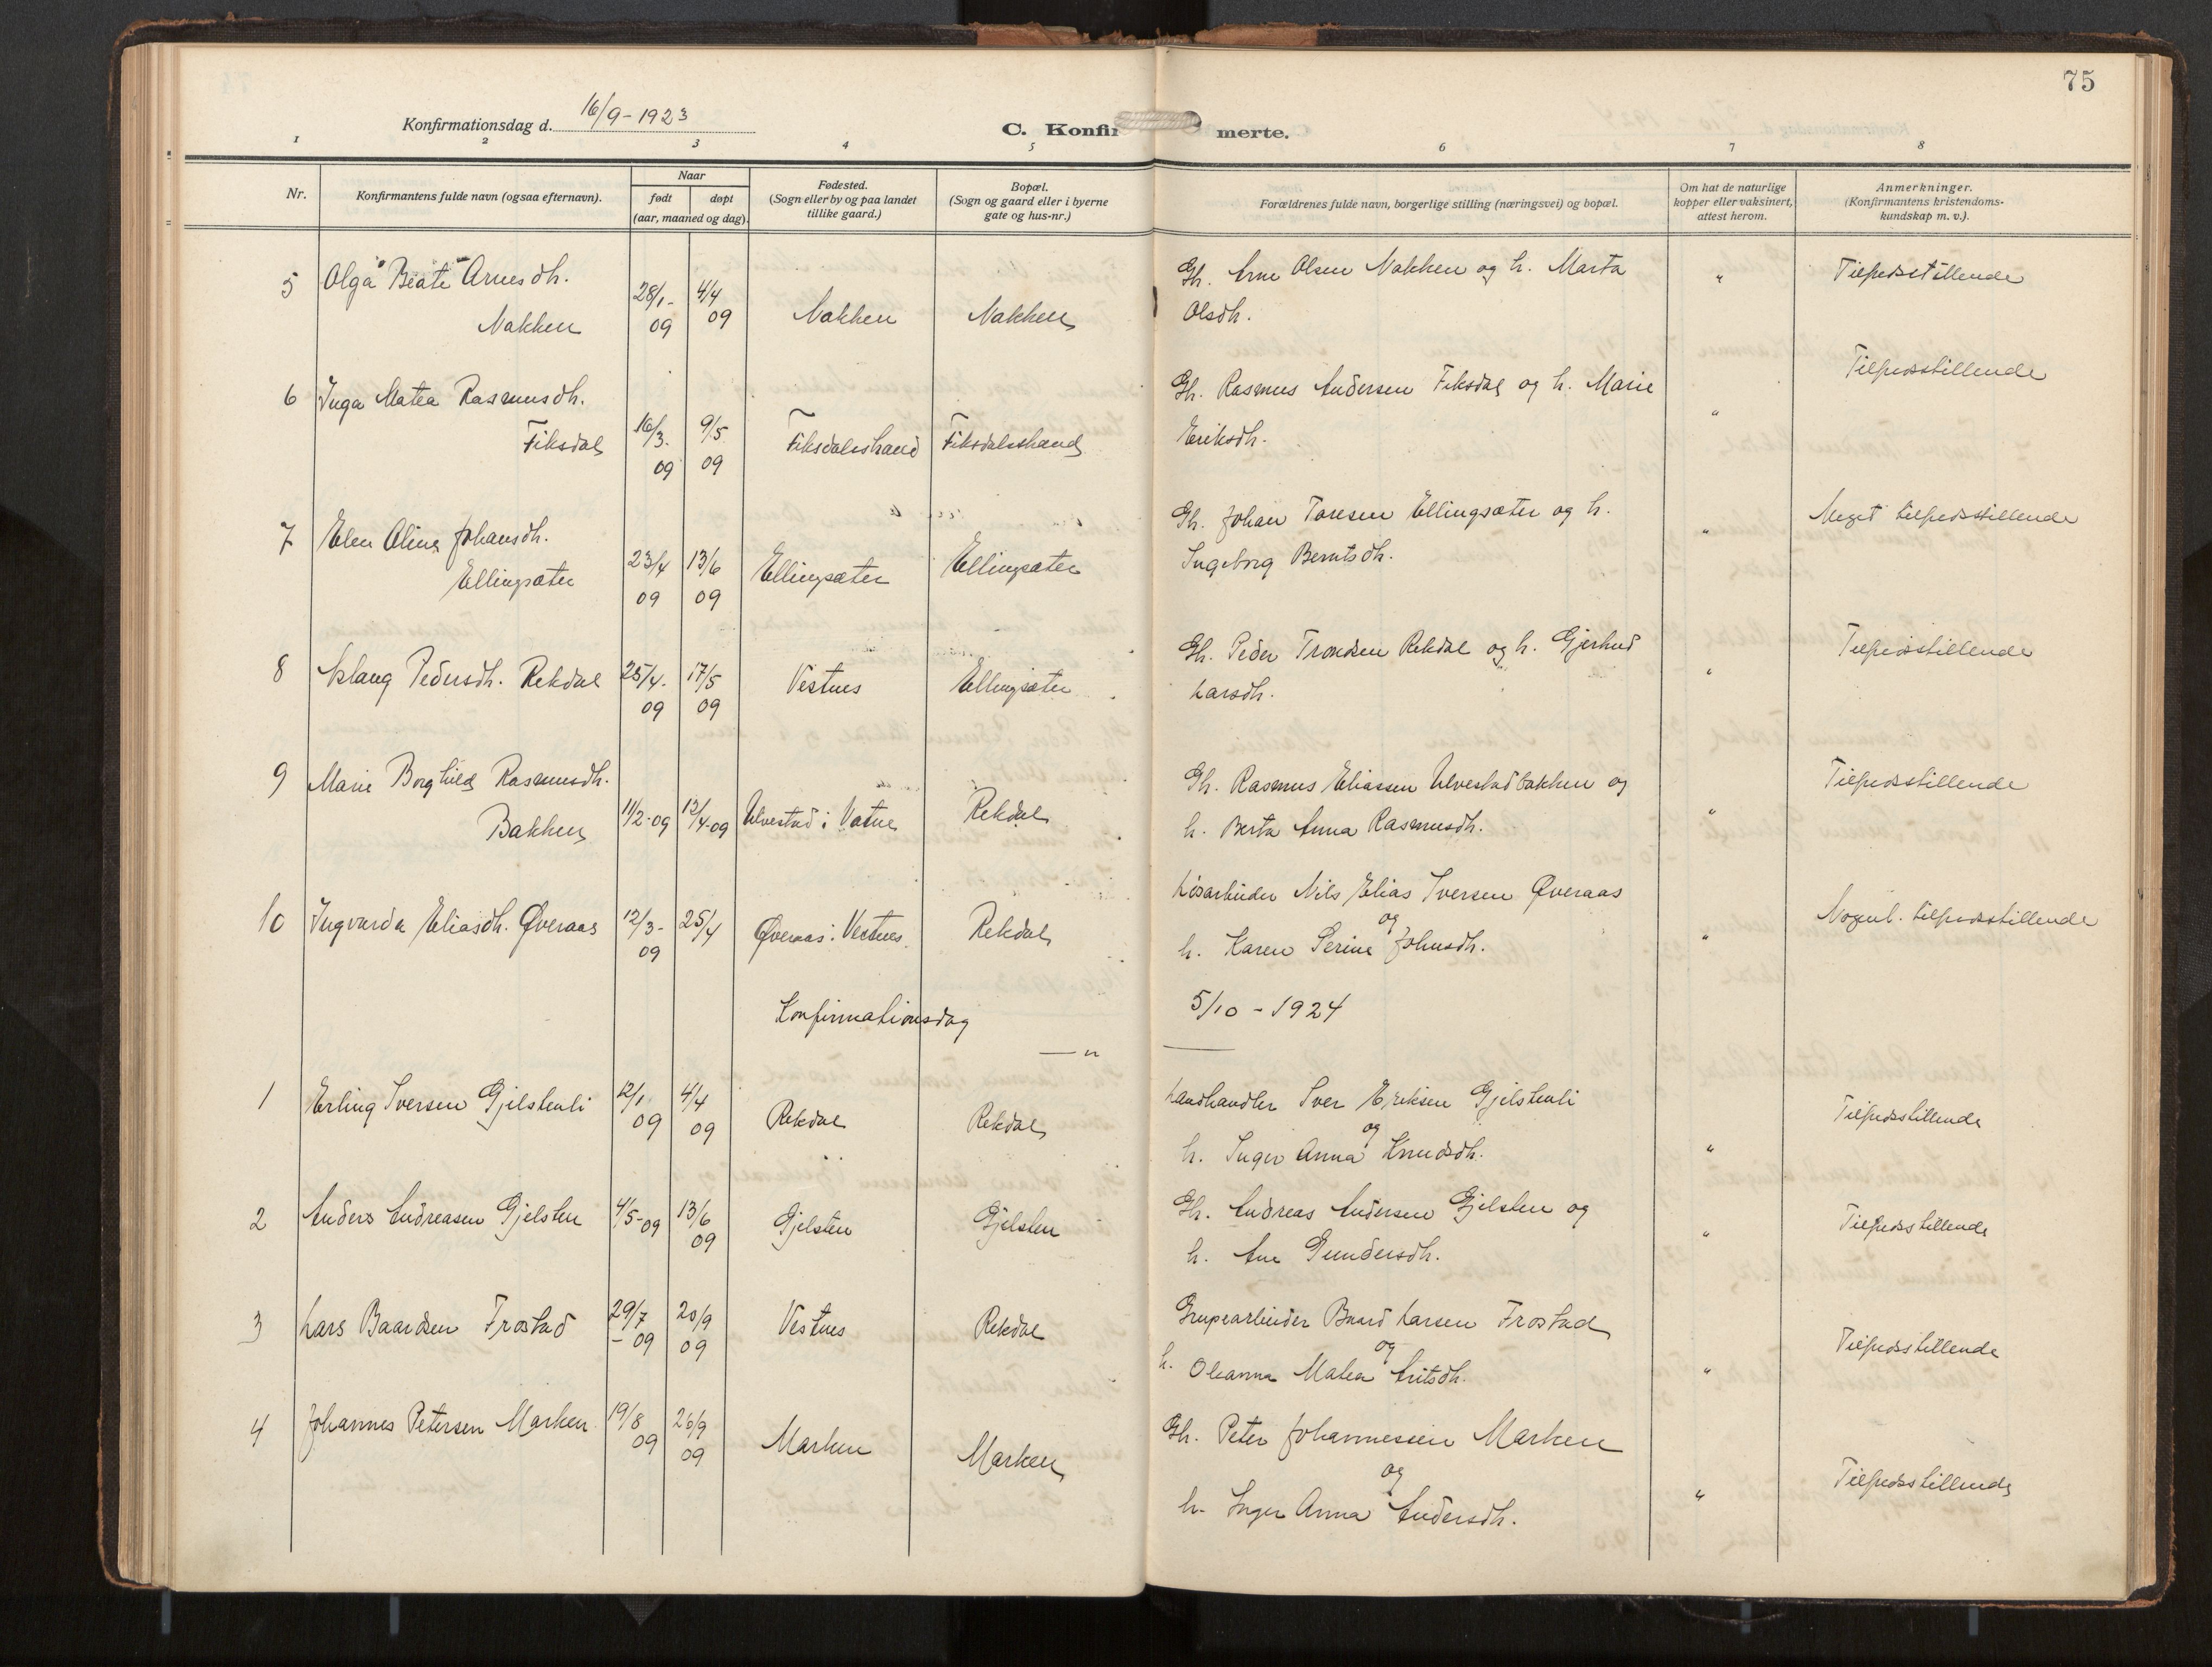 75
Konfirmationsdag d. 16/9 - 1923
C. Konfirmerte.
1 2 3 4 5 6 7 8
Nr.
Konfirmantens fulde navn (ogsaa efternavn).
Naar
født døpt
(aar, maaned og dag).
Fødested.
(Sogn eller by og paa landet
tillike gaard.)
Bopæl.
(Sogn og gaard eller i byerne
gate og hus-nr.)
Forældrenes fulde navn, borgerlige stilling (næringsvei) og bopæl.
Om hat de naturlige
kopper eller vaksinert,
attest herom.
Anmerkninger.
(Konfirmantens kristendoms-
kundskap m. v.).
5 Olga Beate Arnesdh. Gh. Arne Olsen Nakken og h. Marta " Tilfredsstillende
Nakken 28/1- 09 4/4 09 Nakken Nakken Olsdh.
6 Inga Matea Rasmusdh. Gh. Rasmus Andersen Fiksdal og h. Marie " Tilfredsstillende
Fiksdal 16/3. 09 9/5 09 Fiksdalsstrand Fiksdalsstrand Eriksdh.
7 Elen Oline Johansdh. Gh. Johan Toresen Ellingsæter og h. " Meget tilfredsstillende
Ellingsæter 23/4 09 13/6 09 Ellingsæter Ellingsæter Ingeborg Berntsdh.
8 Aslaug Pedersdh. Rekdal 25/4. 09 17/5 09 Vestnes Ellingsæter Gh. Peder Trondsen Rekdal og h. Gjertrud " Tilfredsstillende
Larsdh.
9 Marie Borghild Rasmusdh. Gh. Rasmus Eliassen Ulvestadbakken og " Tilfredsstillende
Bakken 11/2-09 12/4-09 Ulvestad i Vatne Rekdal h. Berta Anna Rasmusdh.
10 Ingvarda Eliasdh. Øveraas 12/3- 09 25/4 Øveraas i Vestnes. Rekdal Løsarbeider Nils Elias Iversen Øveraas " Nogenl. tilfredsstillende
og
h. Karen Serine Johnsdh.
Konfirmationsdag 5/10 - 1924
— "
1 Erling Iversen Gjelstenli 12/1 09 4/4 09 Rekdal Rekdal Landhandler Iver Eriksen Gjelstenli " Tilfredsstillende
og
h. Inger Anna Knudsdh.
2 Anders Andreasen Gjelsten 4/5-09 13/6 09 Gjelsten Gjelsten Gh. Andreas Andersen Gjelsten og " Tilfredsstillende
h. Ane Gundersdh.
3 Lars Baardsen Frostad 29/7 - 09 20/9 09 Vestnes Rekdal Grupearbeider Baard Larsen Frostad " Tilfredsstillende
og
h. Oleanna Matea
4 Johannes Petersen Marken 19/8 09 26/9 09 Marken Marken Gh. Peter Johannessen Marken " Tilfredsstillende
og
h. Inger Anna Andersdh.